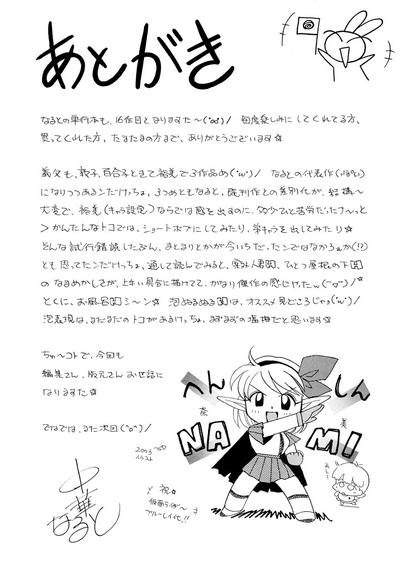 あとがき
なるとの単行本も、16作目となりますた～('∞')/ 毎度楽しみにしてくれてる方、
買ってくれた方、たまたまの方まで、ありがとうございます☆
義父も、敦子、百合子ときて裕美で3作品め('w')/ なるとの代表作(っぽい)
になりつつあるンだけっちょ、3つめともなると、既刊作との差別化が、結構～
大変で、裕美(キャラ設定)ならでは感を出すのに、多少ひと苦労だったナ～っと
> かんたんなトコでは、ショートボブにしてみたり、学キャラを出してみたり☆
そんな試行錯誤したぶん、まとまりとかが今いちだったンではなかろぉか(!?)
とも思ってたンだけっちょ、通して読んでみると、
ひとつ屋根の下
のなまめかしさが、上手い具合に描けてて、かなり傑作の感じャったw("▽")/
とくに、お風呂シ～ン☆ 泡ぬるぬるは、オススメ見どころじゃョ('w')/
泡表現は、まだまだのトコがあるけっちょ、まずまずの塩梅だと思います☆
ちゅ～コトで、今回も
編集さん、版元さん お世話に
なりますた☆
でなでは、また次回('o')/
へん しん
奈 美
NA MI
2003
イラスト
祝☆
仮面ライダー
ブルーレイ化!!
中華なると